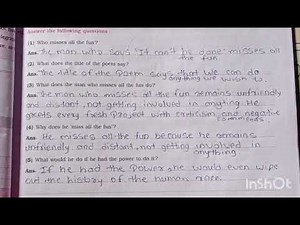 Answer the following questions
(1) Who misses all the fun?
Ans. The man who says 'It can't be done' misses all
the fun
(2) What does the title of the poem say?
Ans. The title of the Poem says that we can do
anything we wish to
(3) What does the man who misses all the fun do?
Ans. The man who misses all the fun remains unfriendly
and distant, not getting involved in anyting He
greets every fresh project with criticism and negative
comments
(4) Why does he miss all the fun?
Ans. He misses all the fun because he remains
unfriendly and distant, not getting involved in
anything.
(5) What would he do if he had the power to do it?
Ans. If he had the Power, he would even wipe
out the history of the human race
InShot